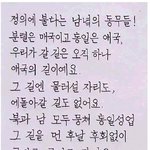 정의에 불타는 남녘의 동무들!
분렬은 매국이고 통일은 애국,
우리가 갈 길은 오직 하나
애국의 길이에요.
그 길엔 물러설 자리도,
에돌아갈 길도 없어요.
북과 남 모두 뭉쳐 통일성업
그 길을 먼 후날 후회없이